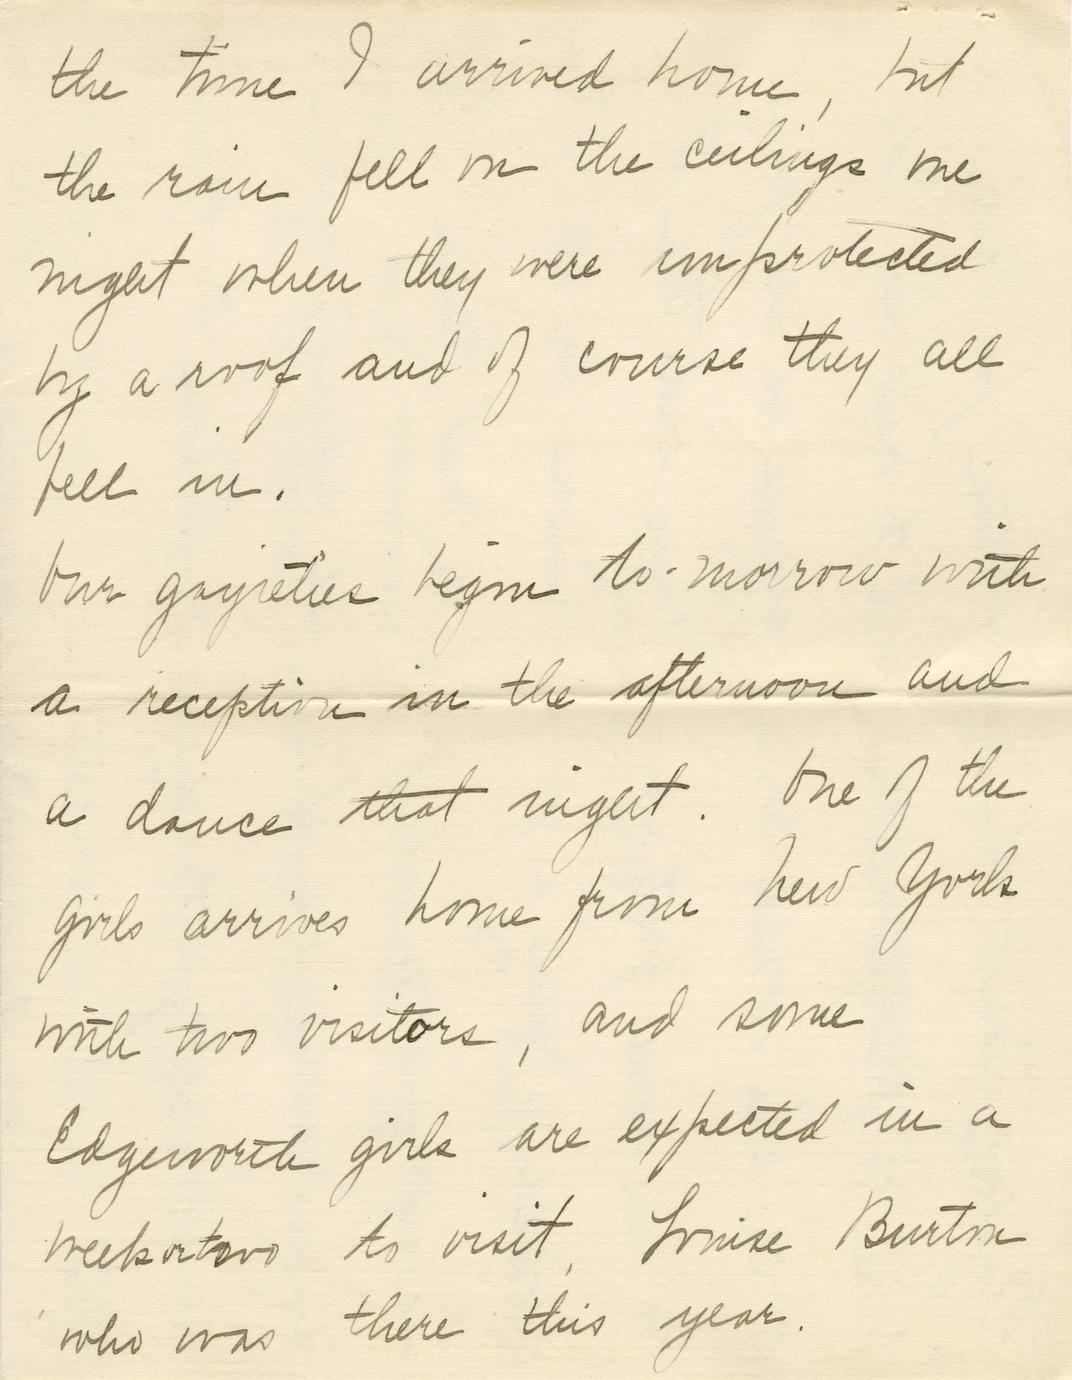 the time I arrived home, but
the rain fell on the ceilings one
night when they were unprotected
by a roof and of course they all
fell in.
Our gayieties begin to-morrow with
a reception in the afternoon and
a dance that night. One of the
girls arrives home from New York
with two visitors, and some
Edgeworth girls are expected in a
week or two to visit, Louise Burton
who was there this year.